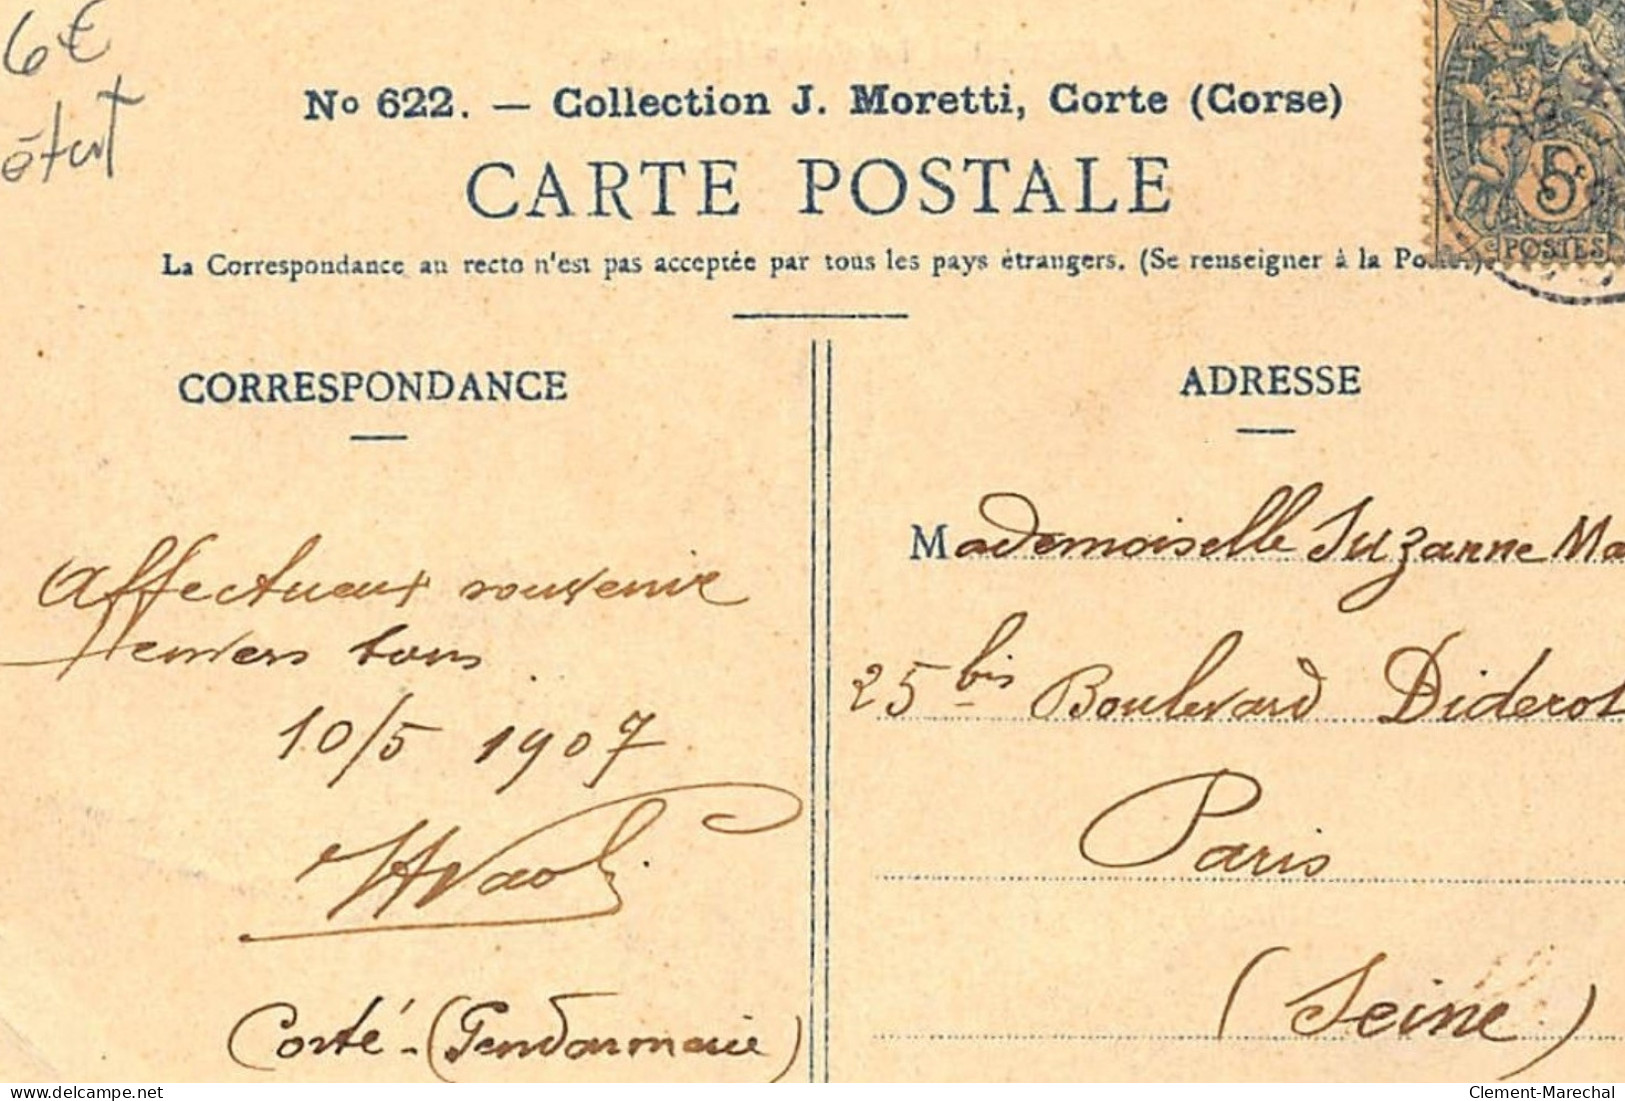 6€
No 622. — Collection J. Moretti, Corte (Corse)
CARTE POSTALE
La Correspondance au recto n'est pas acceptée par tous les pays étrangers. (Se renseigner à la Poste.)
5c
POSTES
CORRESPONDANCE
Affectueux souvenir
envers tous
10/5 1907
Corté - (Gendarmerie)
ADRESSE
Mademoiselle Suzanne Ma
25 bis Boulevard Diderot
Paris
(Seine)
delcampe.net
Clement-Marechal